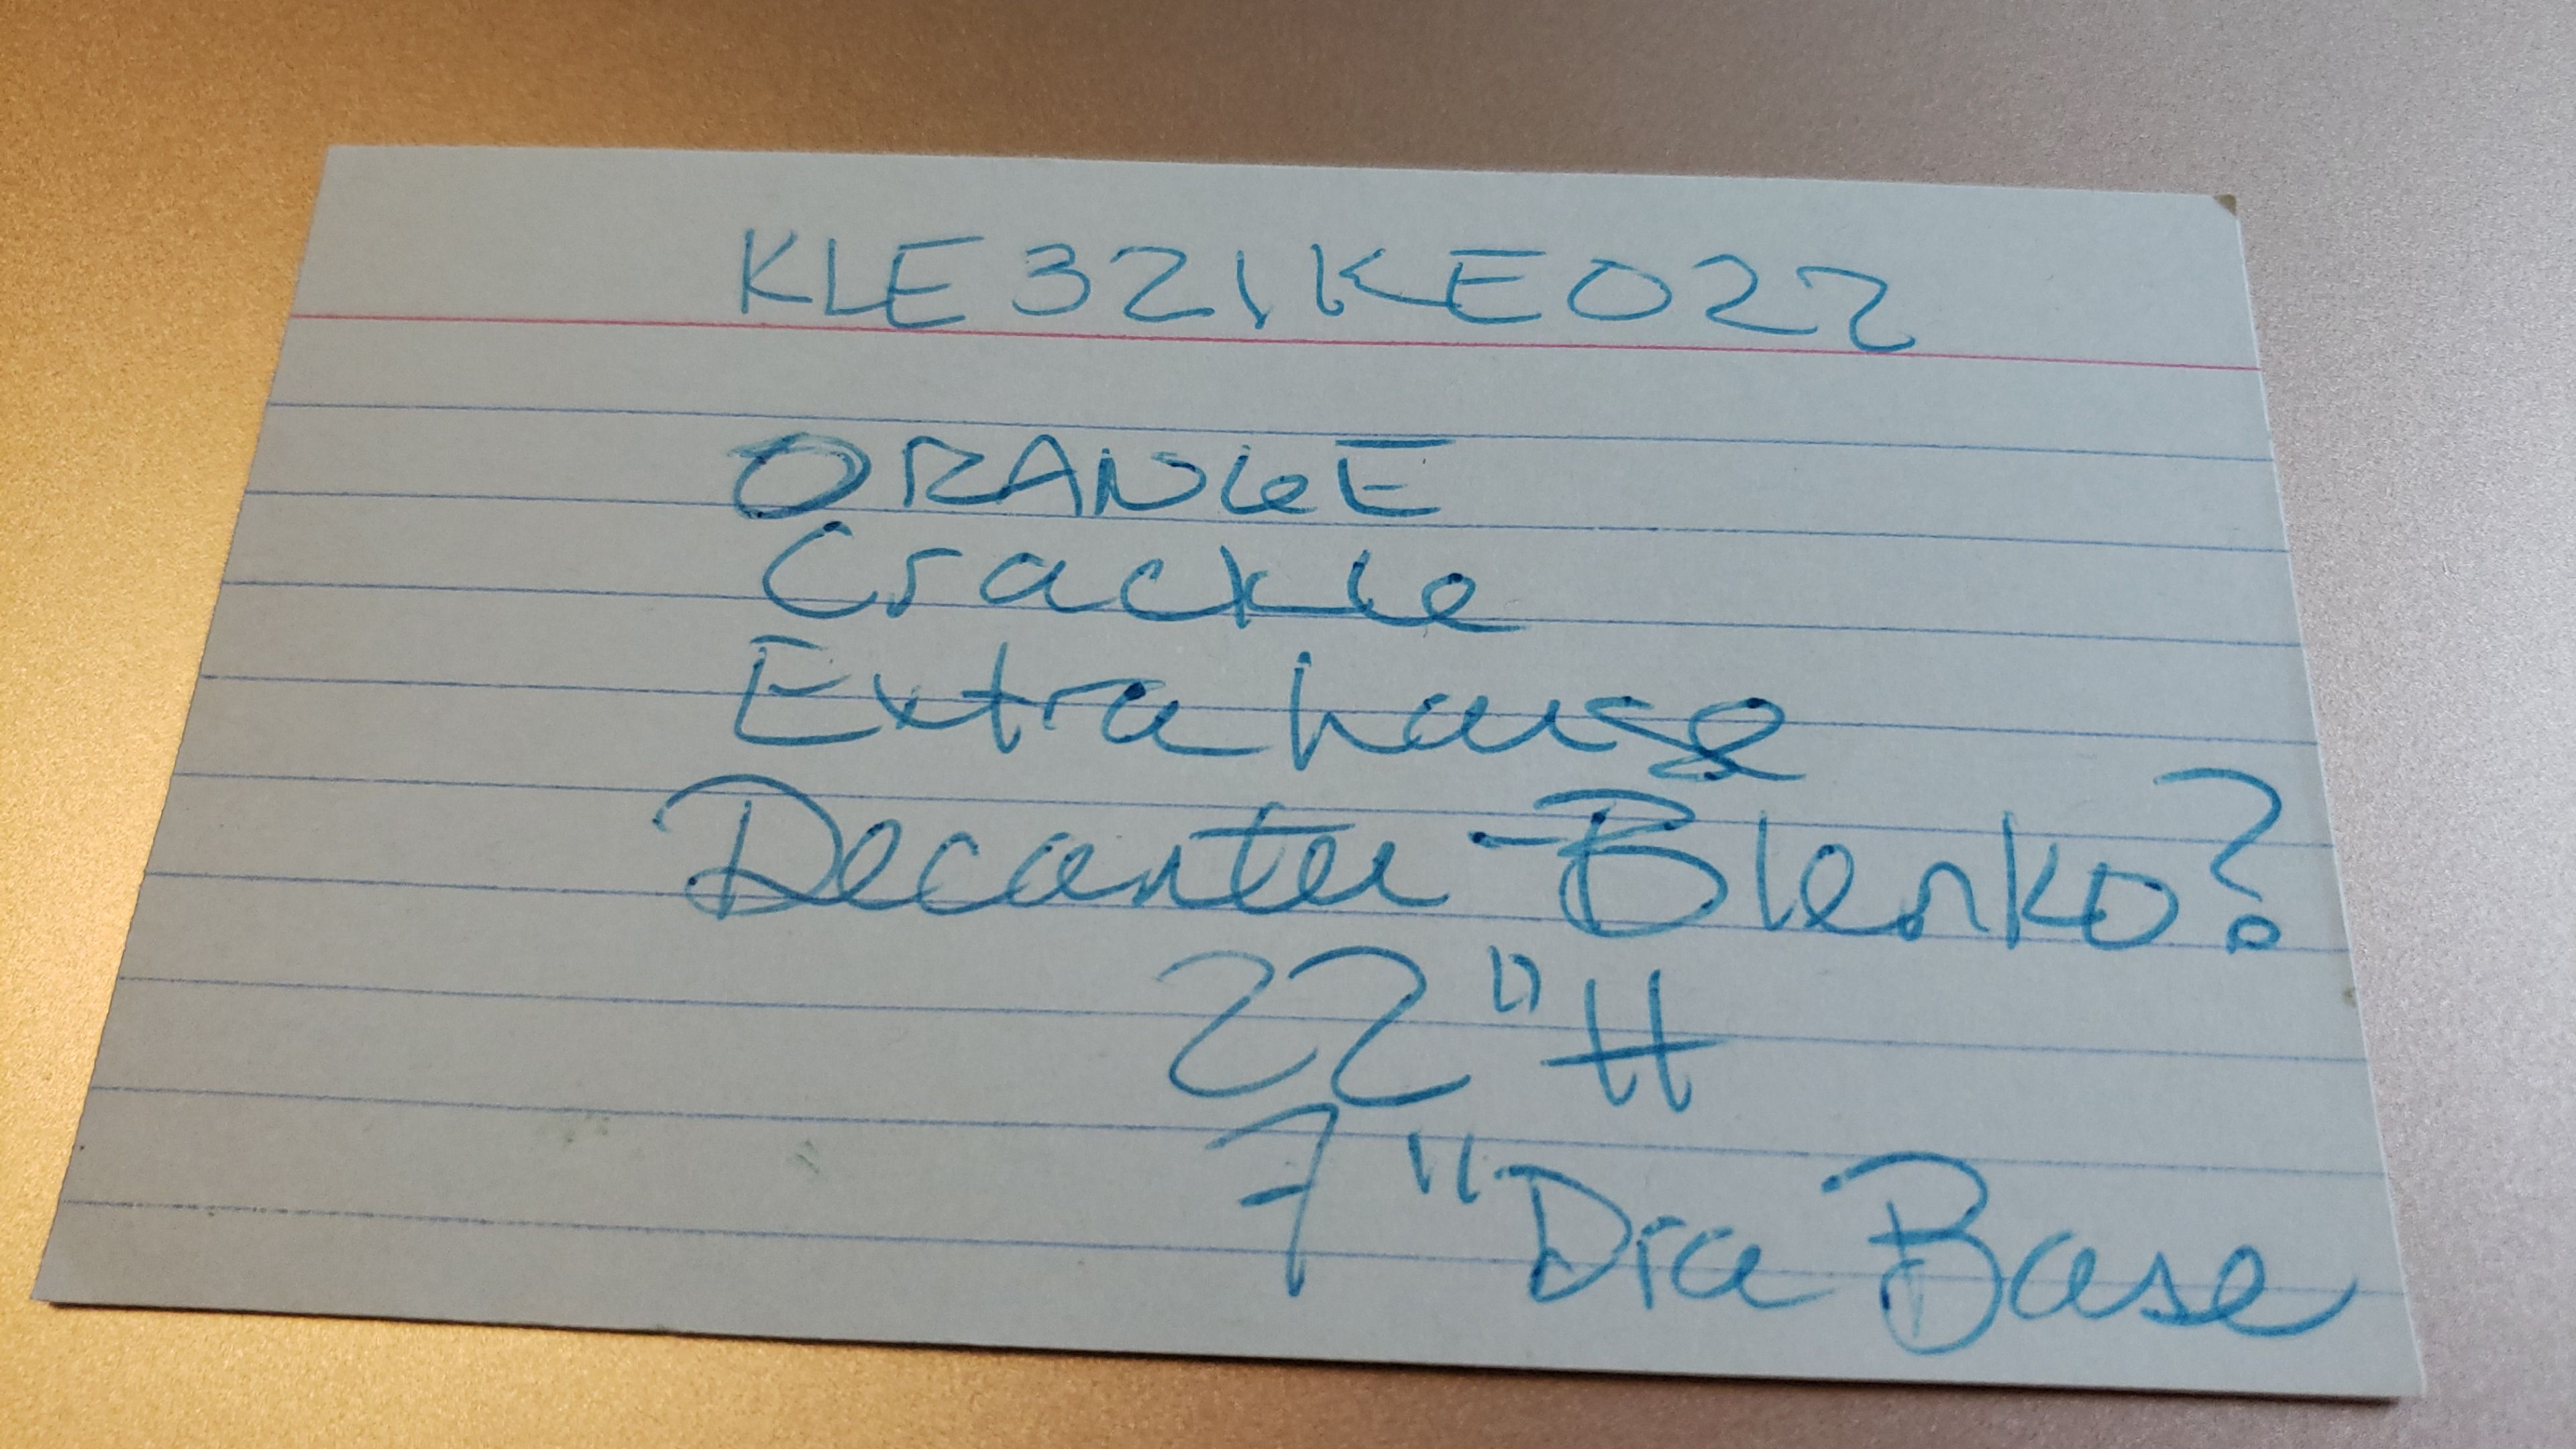 KLE321KE022
ORANGE
Crackle
Extra Large
Decanter - Blenko?
22" H
7" Dia Base